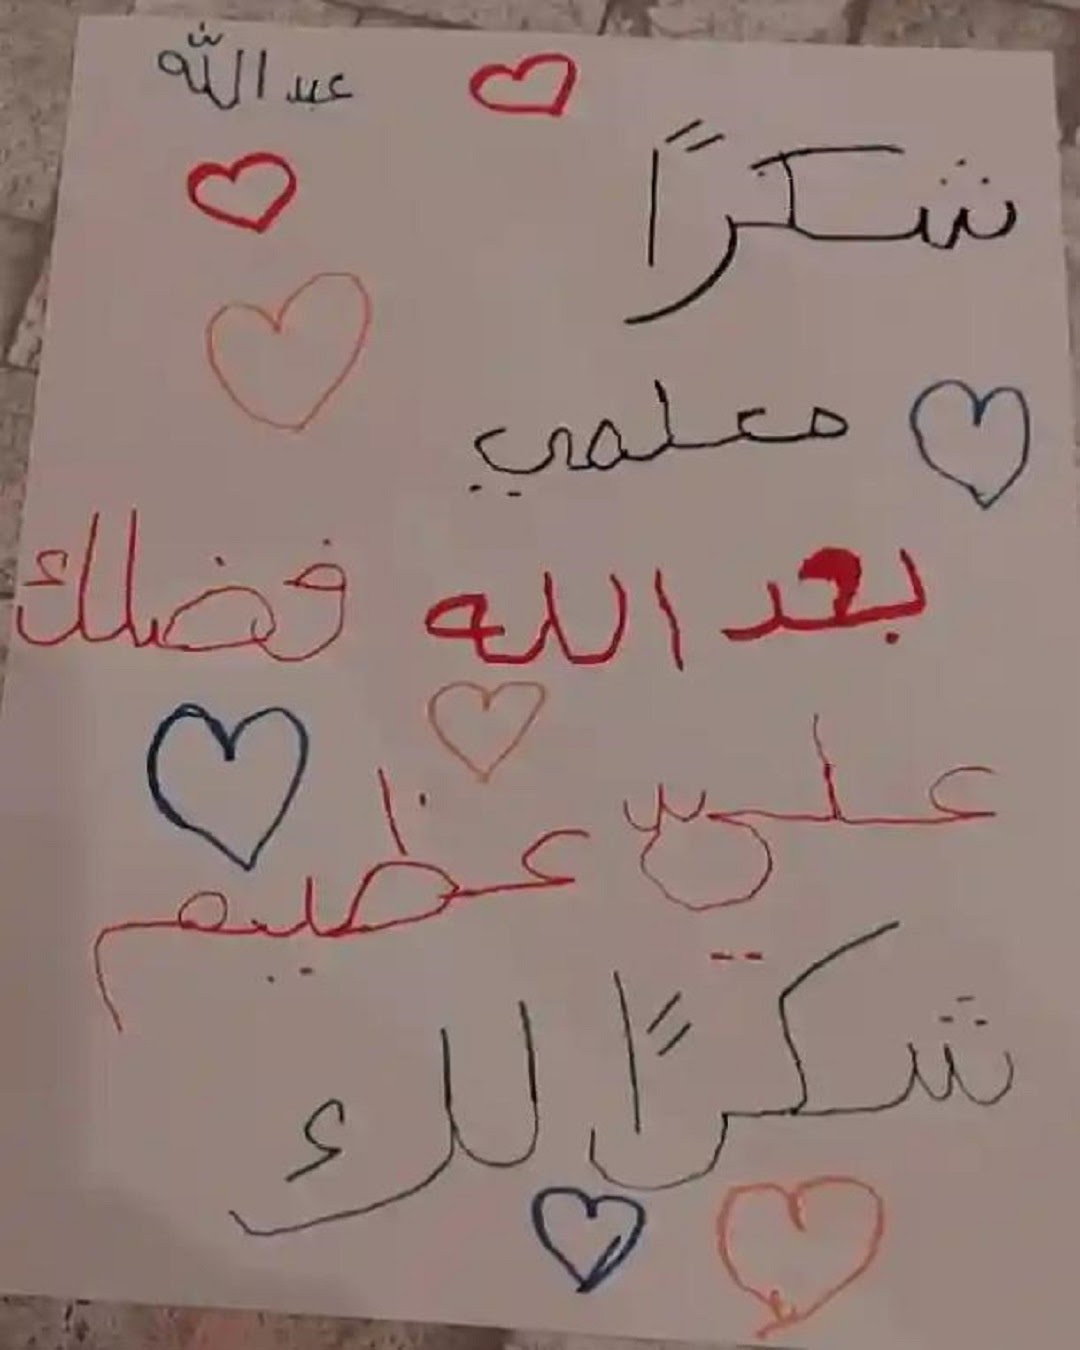 عبد اللّه
شكرًا
معلمي
بعد الله فضلك
علي عظيم
شكرًا لك